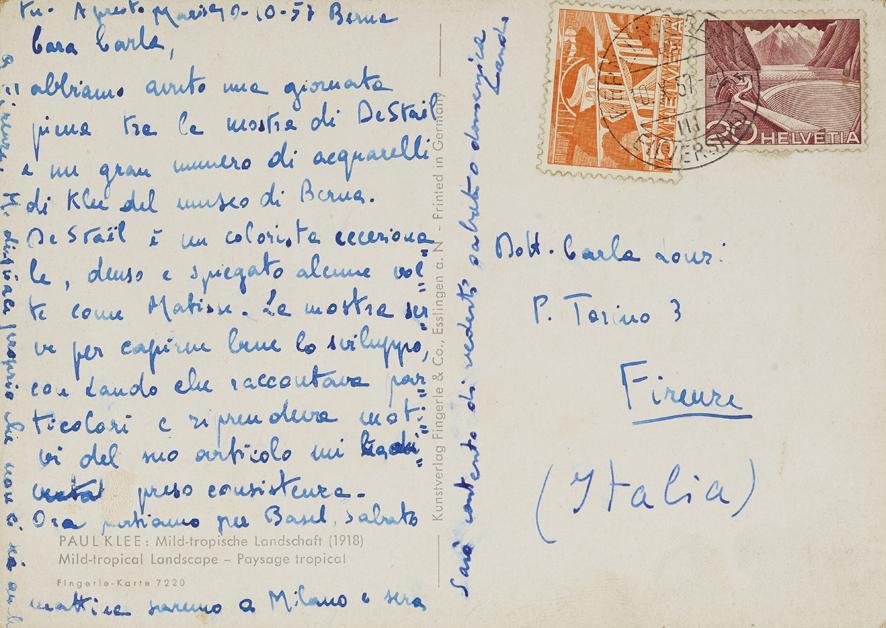 tu. A presto Marisa 9-10-57 Berna
Cara Carla,
abbiamo avuto una giornata
piena tra la mostra di DeStaël
e un gran numero di acquarelli
di Klee del museo di Berna.
De Staël è un colorista ecceziona
le, denso e spiegato alcune vol=
te come Matisse. La mostra ser=
ve per capirne bene lo sviluppo,
con Lando che raccontava par=
ticolari e riprendeva moti=
vi del suo articolo mi
preso consistenza.
Ora partiamo per Basel, sabato
mattina saremo a Milano e sera
a Firenze. M. dispiace proprio che non ci sia anche
Sarò contento di vederti sabato o domenica
Lando
PAUL KLEE: Mild-tropische Landschaft (1918)
Mild-tropical Landscape – Paysage tropical
Fingerle-Karte 7220
Kunstverlag Fingerle & Co., Esslingen a. N - Printed in Germany
HELVETIA
HELVETIA
Dott. Carla Lonzi
P. Torino 3
Firenze
(Italia)